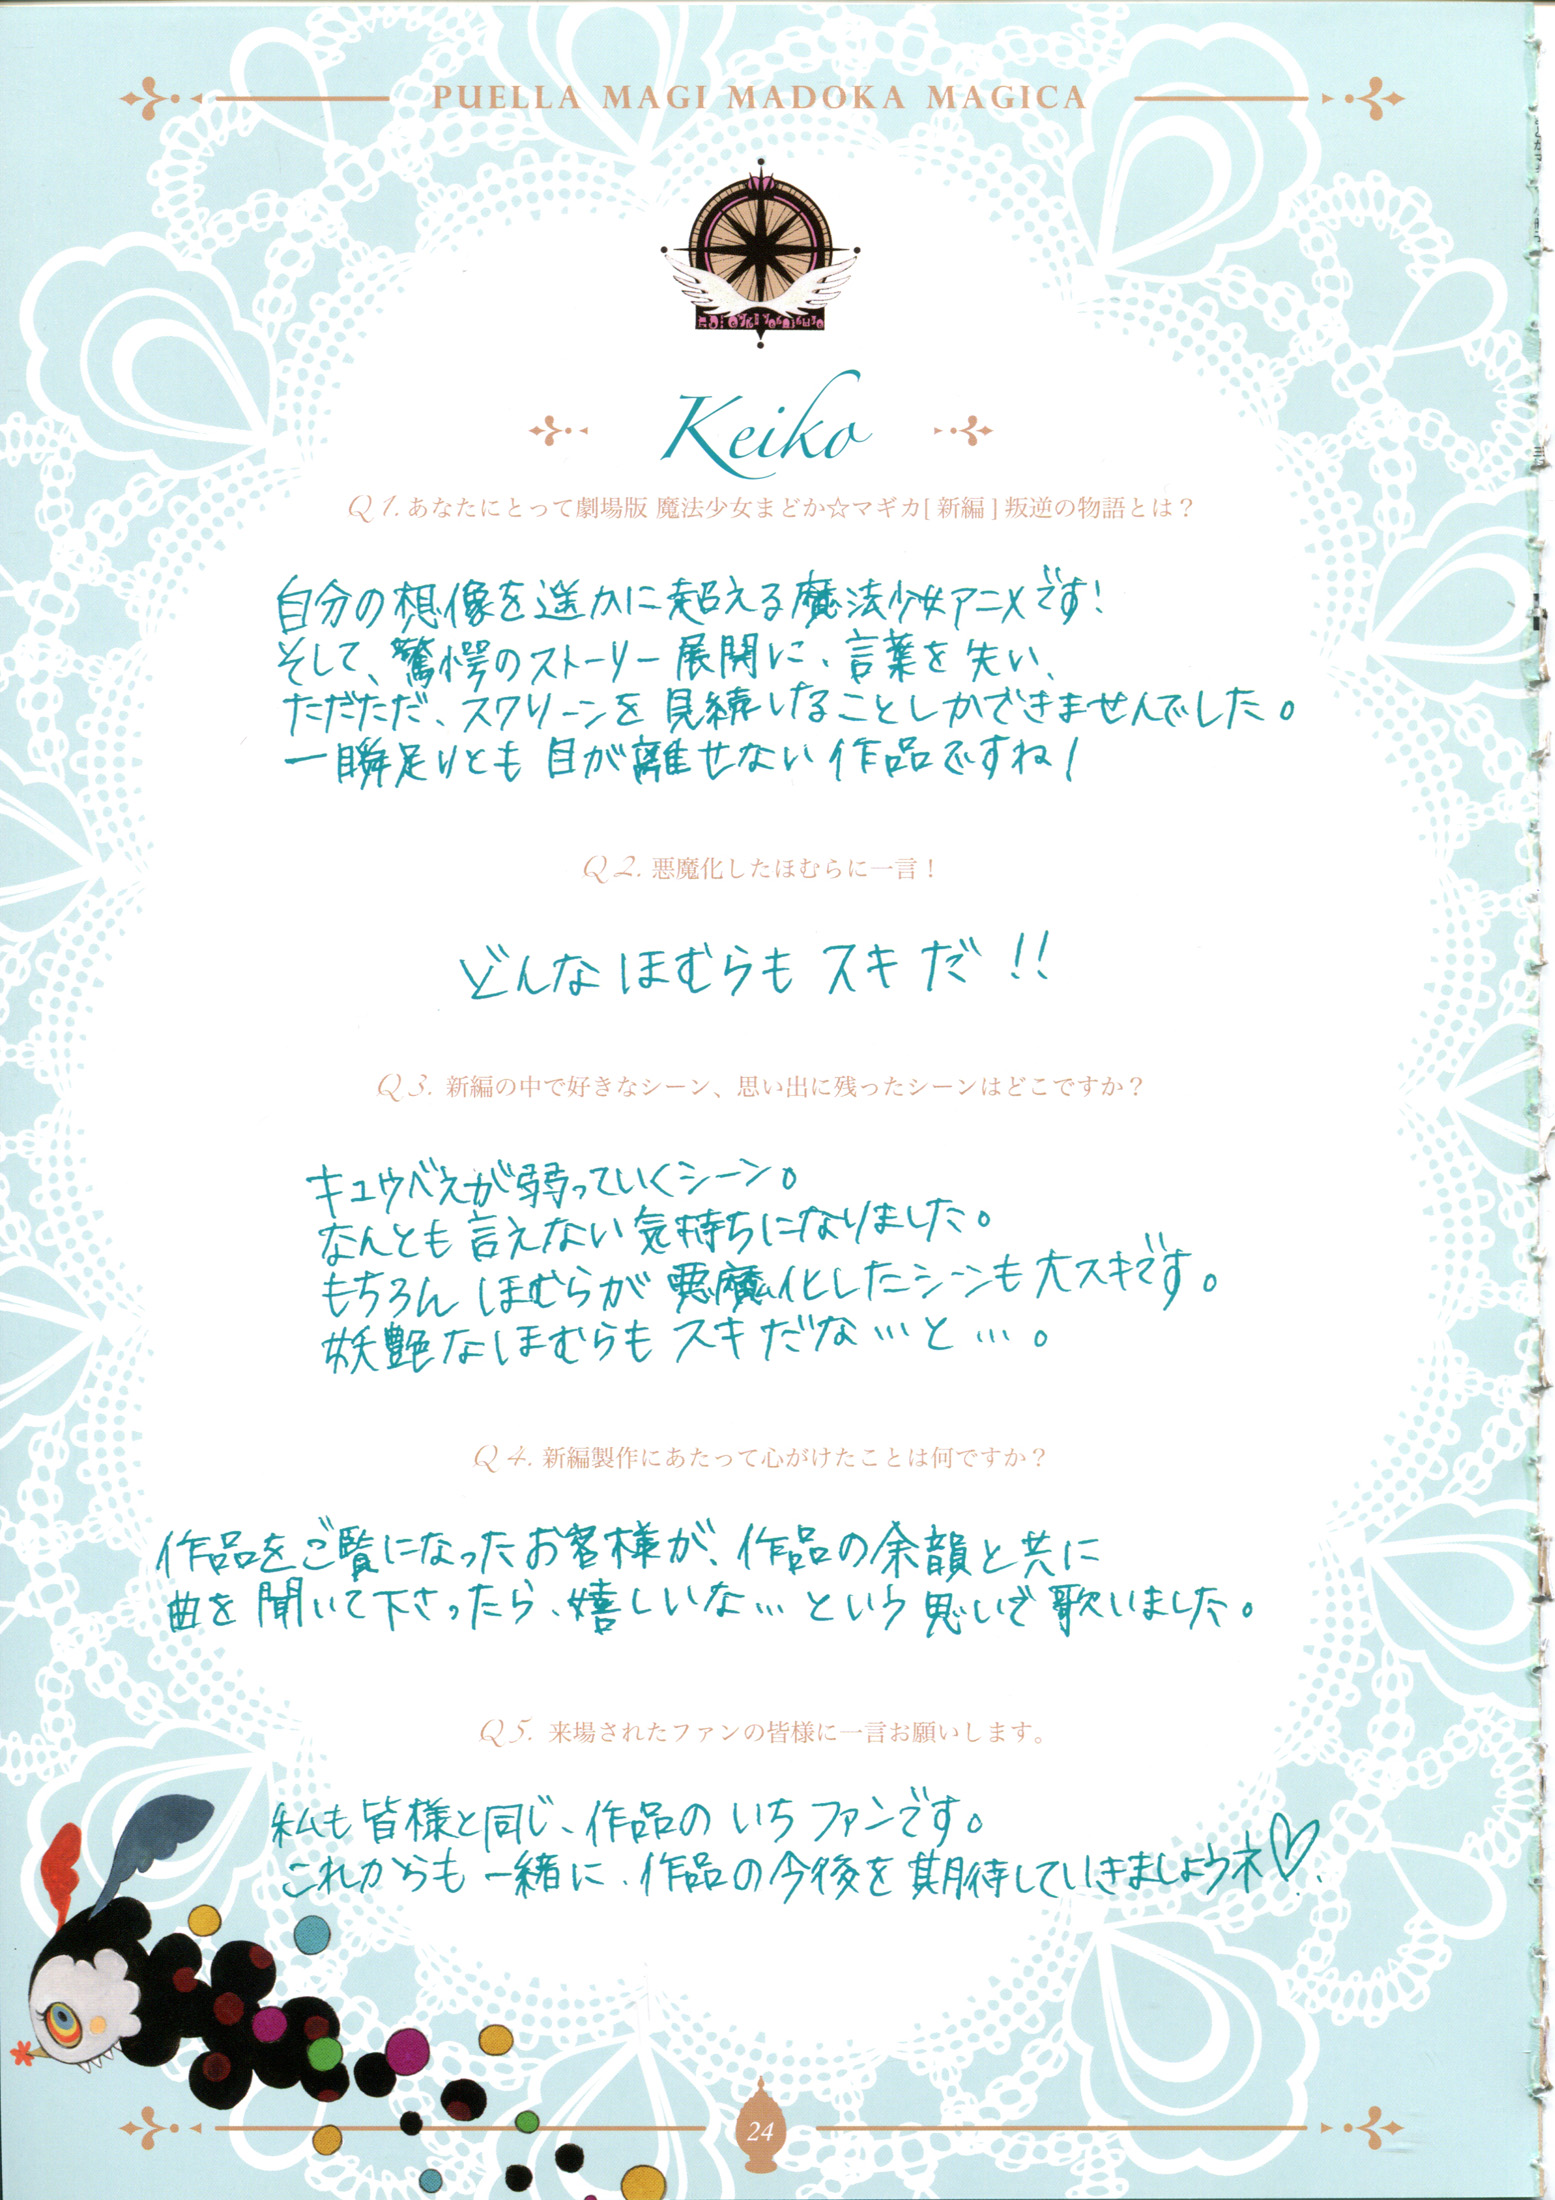 PUELLA MAGI MADOKA MAGICA
Keiko
Q1. あなたにとって劇場版 魔法少女まどか☆マギカ[ 新編 ] 叛逆の物語とは？
自分の想像を遥かに超える魔法少女アニメです！
そして、驚愕のストーリー展開に、言葉を失い、
ただただ、スクリーンを見続けることしかできませんでした。
一瞬足りとも目が離せない作品ですね！
Q2. 悪魔化したほむらに一言！
どんなほむらもスキだ！！
Q3. 新編の中で好きなシーン、思い出に残ったシーンはどこですか？
キュウベえが弱っていくシーン。
なんとも言えない気持ちになりました。
もちろんほむらが悪魔化したシーンも大スキです。
妖艶なほむらもスキだな…と…。
Q4. 新編製作にあたって心がけたことは何ですか？
作品をご覧になったお客様が、作品の余韻と共に
曲を聞いて下さったら、嬉しいな…という思いで歌いました。
Q5. 来場されたファンの皆様に一言お願いします。
私も皆様と同じ、作品のいちファンです。
これからも一緒に、作品の今後を期待していきましょうネ♡.
24